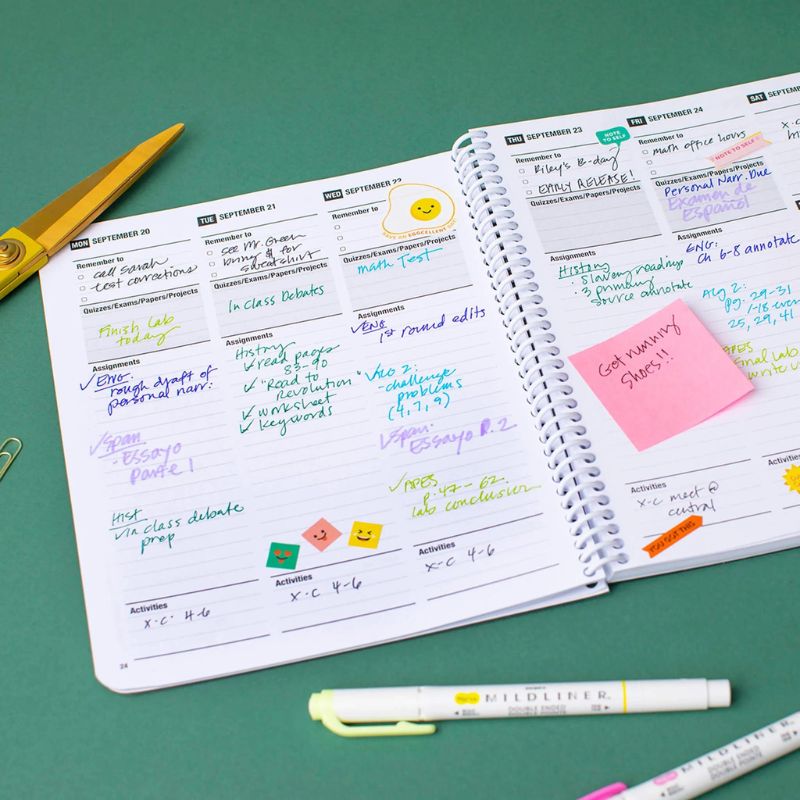 MON SEPTEMBER 20
Remember to
call Sarah
test corrections
Quizzes/Exams/Papers/Projects
Finish Lab
today
Assignments
✓ ENG:
rough draft of
personal narr.
✓ Span
- Essayo
Parte 1
HIST
✓ in class debate
prep
Activities
X-C 4-6
24
TUE SEPTEMBER 21
Remember to
see Mr. Green
bring $ for
sweatshirt
Quizzes/Exams/Papers/Projects
In class Debates
Assignments
History
✓ read pages
83-90
✓ "Road to
Revolution"
✓ worksheet
✓ keywords
Activities
X-C 4-6
WED SEPTEMBER 22
Remember to
HAVE AN EGGCELLENT DAY
Quizzes/Exams/Papers/Projects
math Test
Assignments
✓ ENG
1st round edits
✓ ALG 2:
-challenge
problems
(4, 7, 9)
✓ Span:
Essayo P. 2
✓ APES
P. 47-62
lab conclusion
Activities
X-C 4-6
THU SEPTEMBER 23
NOTE
TO SELF
Remember to
Riley's B-day
EARLY RELEASE!
Quizzes/Exams/Papers/Projects
Assignments
History
• slavery readings
• 3 primary
source annotate
Got running
shoes!!
Activities
X-C meet @
central
YOU GOT THIS
FRI SEPTEMBER 24
Remember to
math office hours
NOTE TO SELF
Quizzes/Exams/Papers/Projects
Personal Narr. Due
Examen de
Español
Assignments
ENG:
Ch 6-8 annotate
Alg 2:
pg. 29-31
1-18 even
25, 29, 41
APES
Lab
write u
Activities
SAT SEPTEMB
X-C
MILDLINER
DOUBLE ENDED
MILDLINER
DOUBLE ENDED